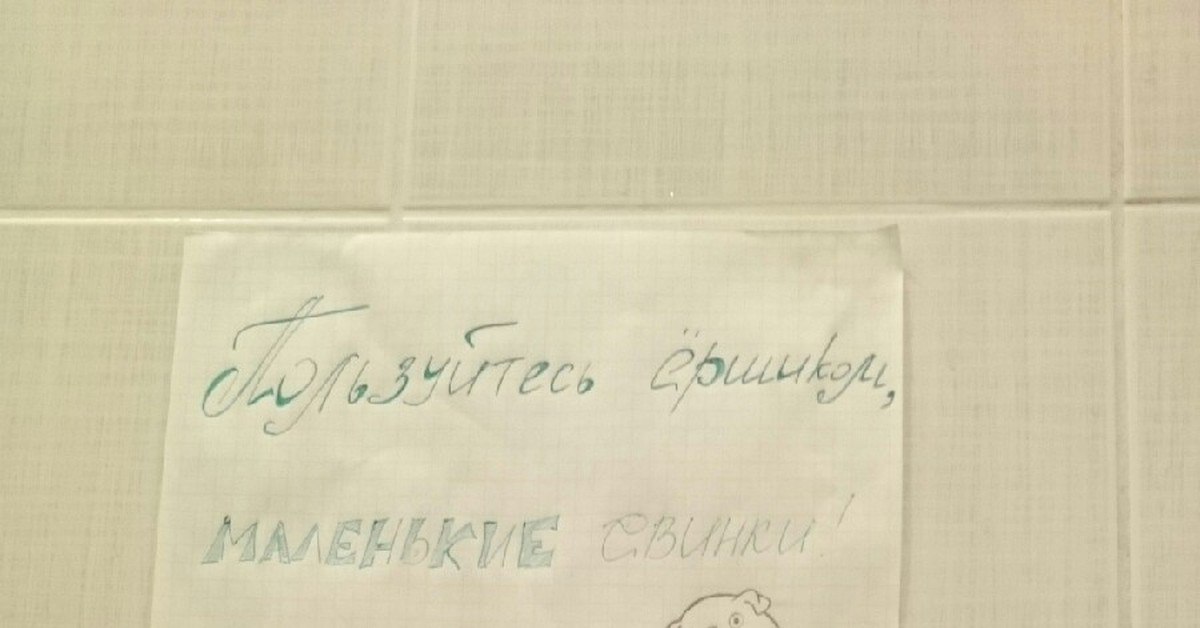 Пользуйтесь ёршиком,
МАЛЕНЬКИЕ СВИНКИ!